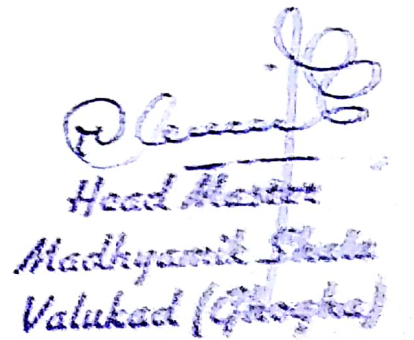 Head Master
Madhyamik Shala
Valukad (Ghogha)